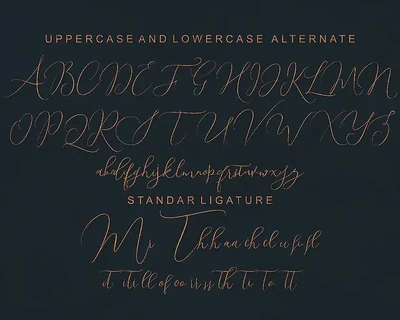 UPPERCASE AND LOWERCASE ALTERNATE
A B C D E F G H I J K L M N
O P Q R S T U V W X Y Z
a b c d e f g h i j k l m n o p q r s t u v w x y z
STANDAR LIGATURE
Mr Th h aa ch cl
it ll of oo rr ss th ti to tt